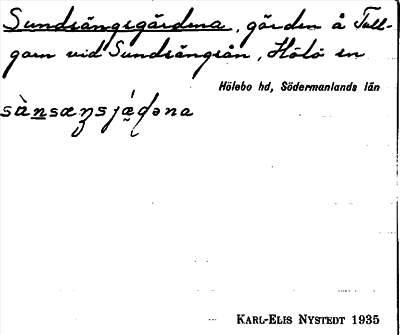 Sundsängsgärdena, gärden å Tull-
garn vid Sundsängsån, Hölö sn
Hölebo hd, Södermanlands län
sànsæŋsjǽɖəna
KARL-ELIS NYSTEDT 1935